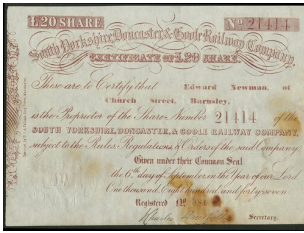 £.20 SHARE No 21414
South Yorkshire, Doncaster & Goole Railway Company
CERTIFICATE OF £20 SHARE
These are to Certify that Edward Newman, of
Church Street, Barnsley,
is the Proprietor of the Share Number 21414 of the
SOUTH YORKSHIRE, DONCASTER, & GOOLE RAILWAY COMPANY,
subject to the Rules Regulations & Orders of the said Company
Given under their Common Seal
the 6th day of September in the Year of our Lord
One thousand Eight hundred and forty seven
Registered
Secretary.